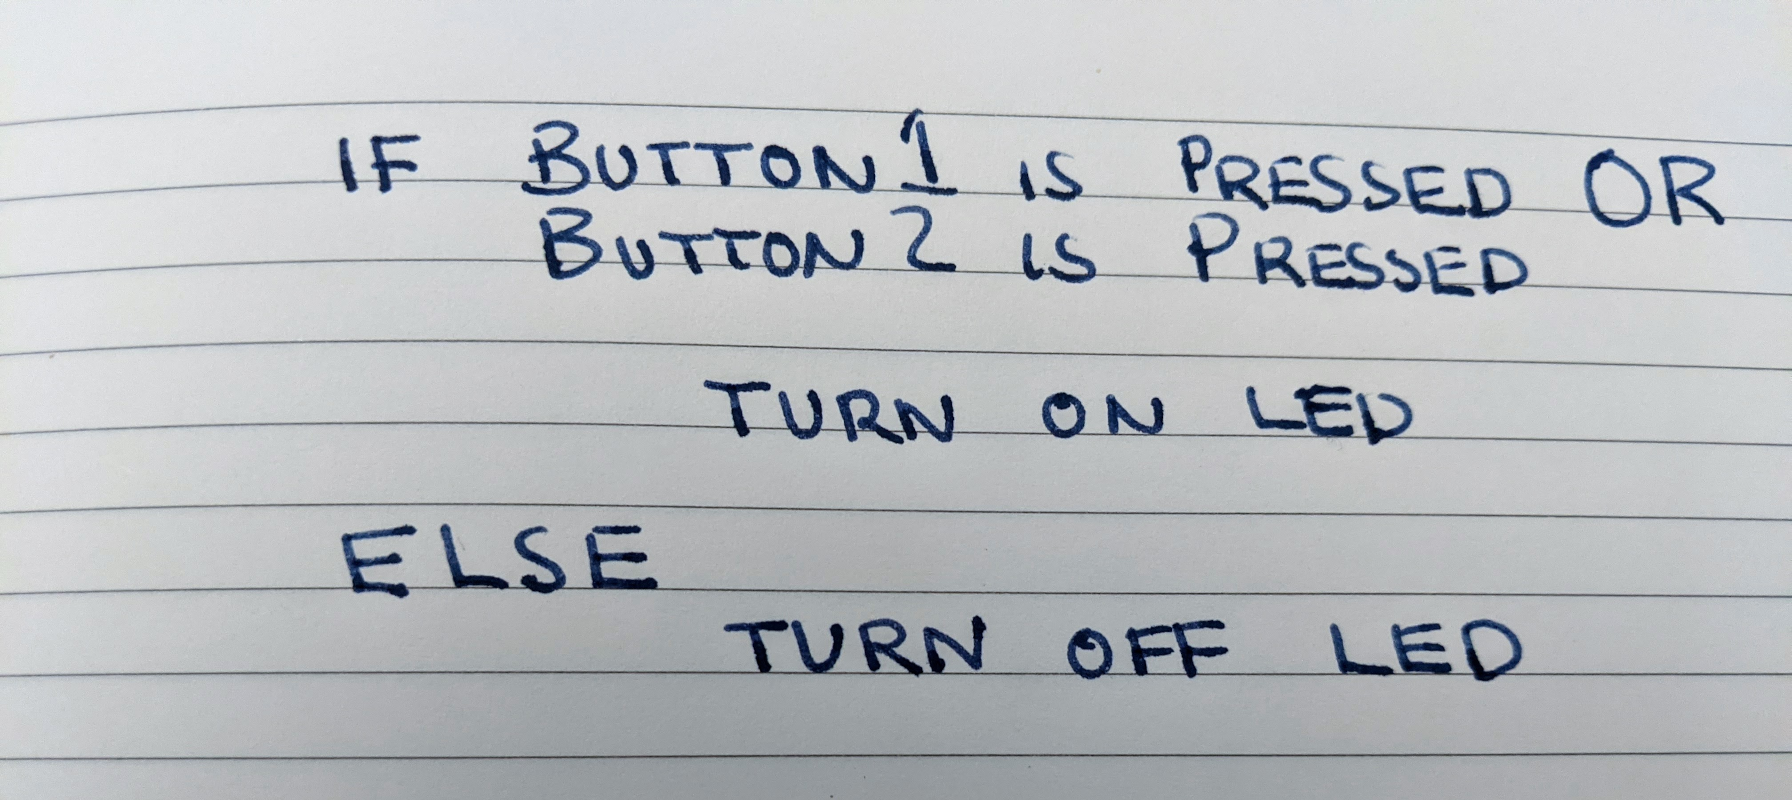 IF BUTTON 1 IS PRESSED OR
BUTTON 2 IS PRESSED
TURN ON LED
ELSE
TURN OFF LED